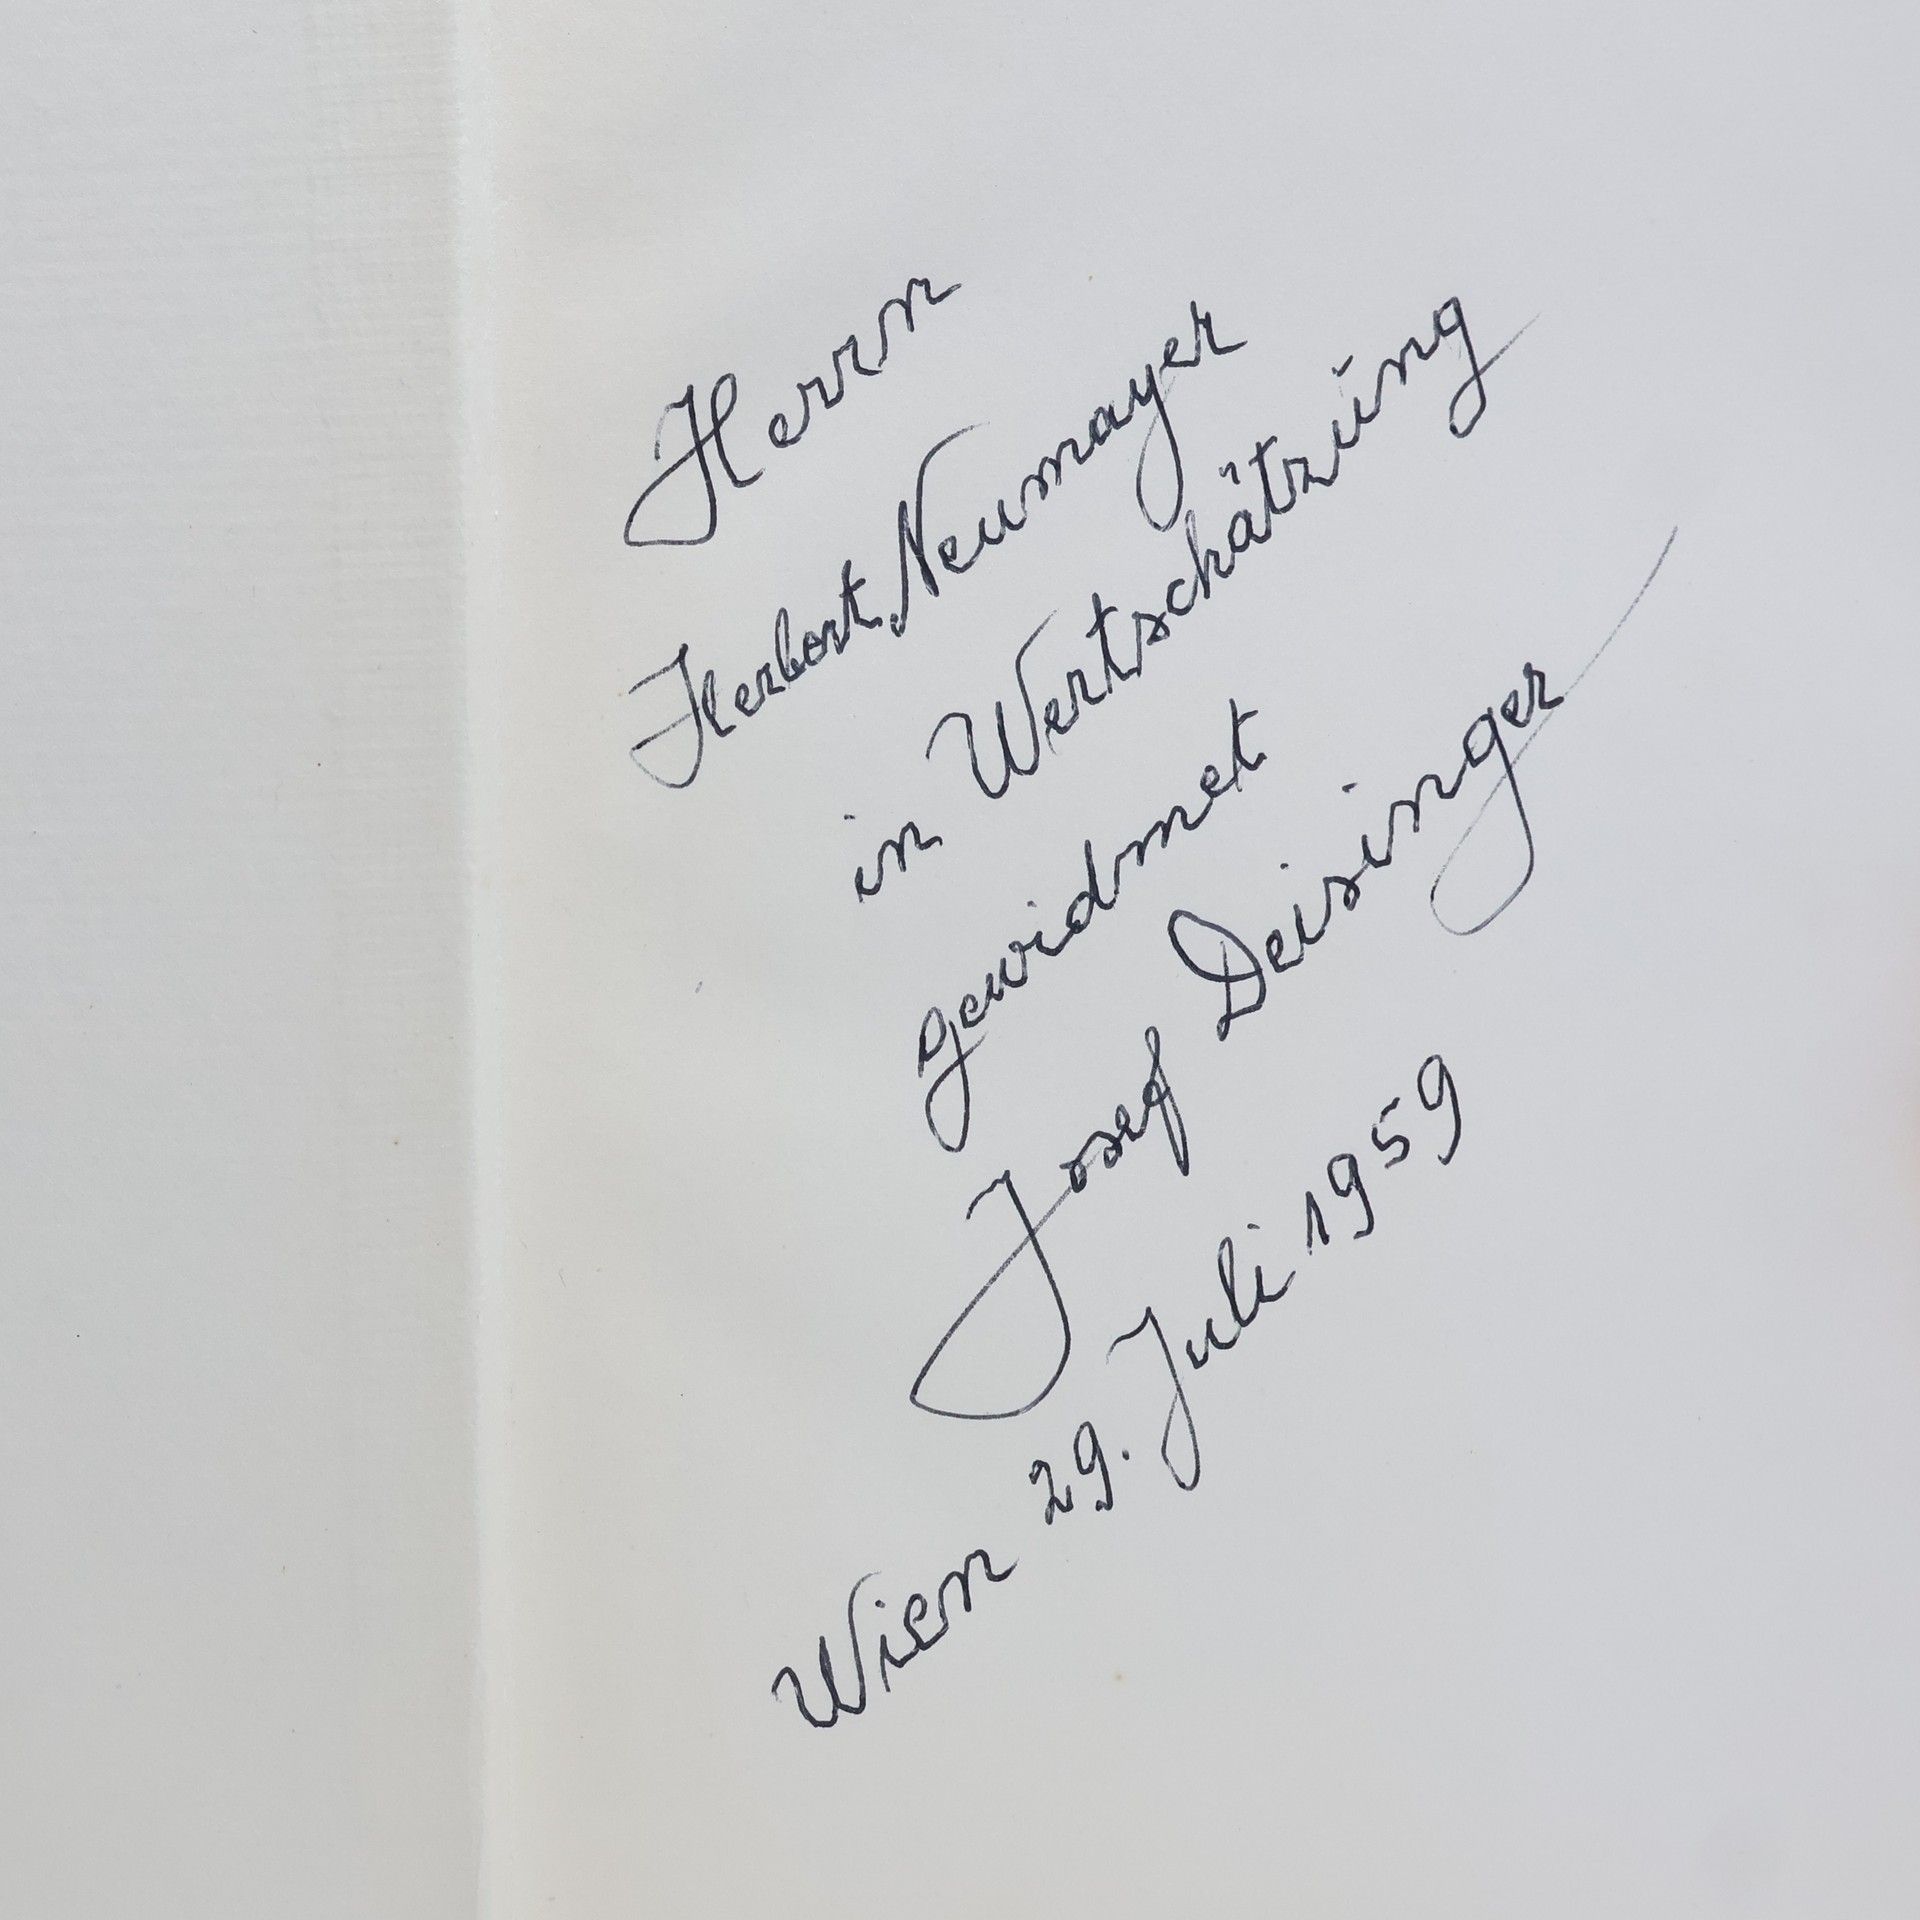 Herrn
Herbert Neumayer
in Wertschätzung
gewidmet
Josef Deisinger
Wien 29. Juli 1959